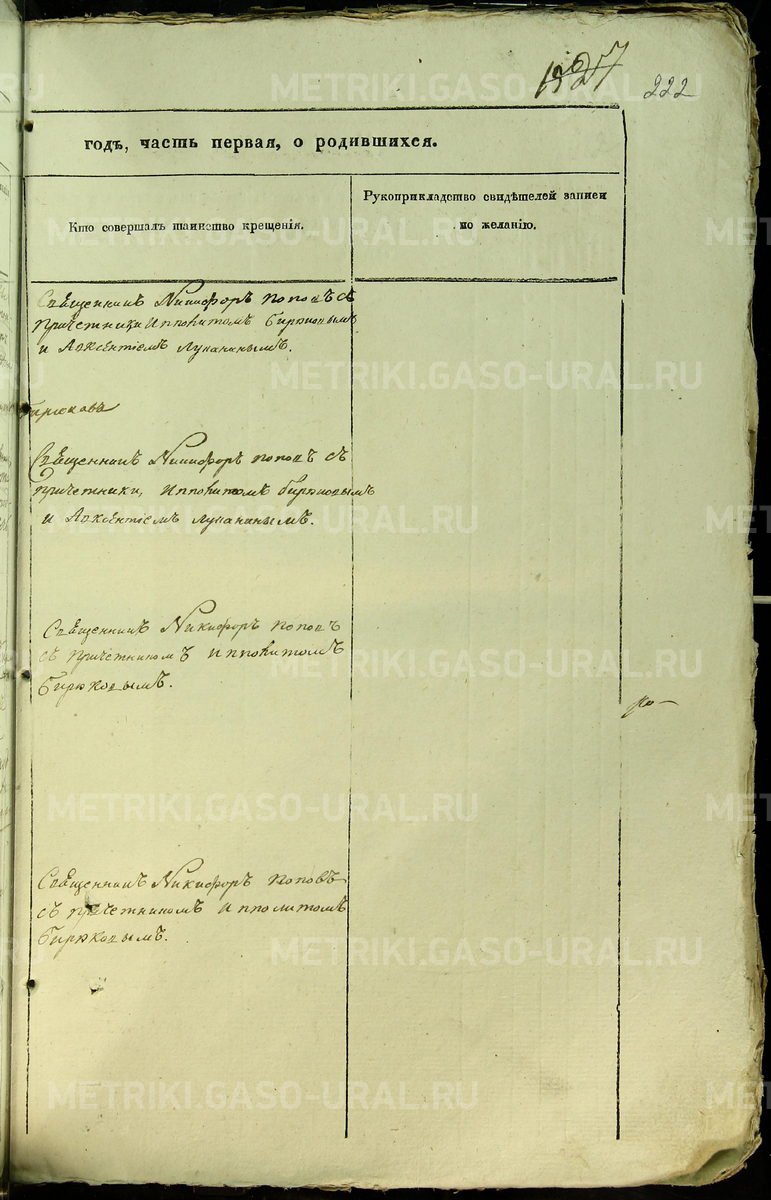 222
годъ, часть первая, о родившихся.
Кто совершалъ таинство крещенія.
Рукоприкладство свидѣтелей записи
по желанію.
Священникъ Никифоръ Поповъ съ
Причетники Ипполитомъ Бирюковымъ
и Авксентіемъ Лупанинымъ.
Бирюкова
Священникъ Никифоръ Поповъ съ
Причетники, Ипполитомъ Бирюковымъ
и Авксентіемъ Лупанинымъ.
Священникъ Никифоръ Поповъ
съ Причетникомъ Ипполитомъ
Бирюковымъ.
по
Священникъ Никифоръ Поповъ
съ причетникомъ Ипполитомъ
Бирюковымъ.
METRIKI.GASO-URAL.RU